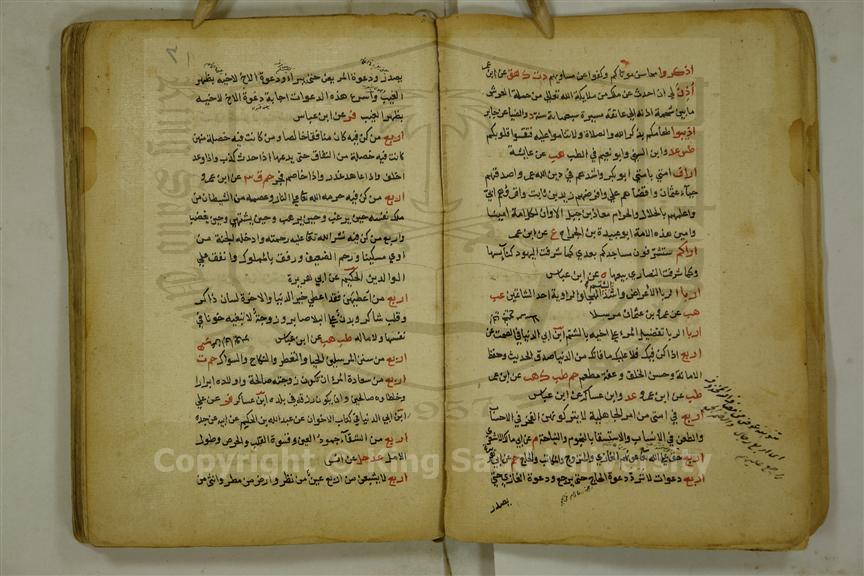 اذكروا محاسن موتاكم وكفوا عن مساويهم دت ك هق عن ابن عمر
أذن لي ان احدث عن ملك من ملايكة الله تعالى من حملة العرش
ما بين شحمة اذنه الى عاتقه مسيرة سبعماية سنة د والضيا عن جابر
اذيبوا طعامكم بذكر الله والصلاة ولا تناموا عليه فتقسوا قلوبكم
طس عد وابن السني وابو نعيم في الطب هب عن عايشة
اراف امتي بامتي ابو بكر واشدهم في دين الله عمر واصدقهم
حياء عثمان واقضاهم علي وافرضهم زيد بن ثابت واقرؤهم ابي
واعلمهم بالحلال والحرام معاذ بن جبل الا وان لكل امة امينا
وامين هذه الامة ابو عبيدة بن الجراح ع عن ابن عمر
اراكم ستشرفون مساجدكم بعدي كما شرفت اليهود كنايسها
وكما شرفت النصارى بيعها ه عن ابن عباس
اربا الربا شتم الاعراض واشد الهجاء والراوية احد الشاتمين عب
هب عن عمرو بن عثمان مرسلا
اربا الربا تفضيل المرء على اخيه بالشتم ابن ابي الدنيا في الصمت عن
اربع اذا كن فيك فلا عليك ما فاتك من الدنيا صدق الحديث وحفظ
الامانة وحسن الخلق وعفة مطعم حم طب ك هب عن ابن عمر
طب عن ابن عمرو عد وابن عساكر عن ابن عباس
اربع في امتي من امر الجاهلية لا يتركونهن الفخر في الاحساب
والطعن في الانساب والاستسقا بالنجوم والنياحة م عن ابي مالك الاشعري
اربع حق على الله تعالى عونهم الغازي والمتزوج والمكاتب والحاج حم عن ابي هريرة
اربع دعوات لا ترد دعوة الحاج حتى يرجع ودعوة الغازي حتى
يصدر
يصدر ودعوة المريض حتى يبرا ودعوة الاخ لاخيه بظهر
الغيب واسرع هذه الدعوات اجابة دعوة الاخ لاخيه
بظهر الغيب فر عن ابن عباس
اربع من كن فيه كان منافقا خالصا ومن كانت فيه خصلة منهن
كانت فيه خصلة من النفاق حتى يدعها اذا حدث كذب واذا وعد
اخلف واذا عاهد غدر واذا خاصم فجر حم ق ٣ عن ابن عمرو
اربع من كن فيه حرمه الله تعالى على النار وعصمه من الشيطان من
ملك نفسه حين يرغب وحين يرهب وحين يشتهي وحين يغضب
واربع من كن فيه نشر الله تعالى عليه رحمته وادخله الجنة من
آوى مسكينا ورحم الضعيف ورفق بالمملوك وانفق على
الوالدين الحكيم عن ابي هريرة
اربع من اعطيهن فقد اعطي خير الدنيا والاخرة لسان ذاكر
وقلب شاكر وبدن على البلا صابر وزوجة لا تبغيه خونا في
نفسها ولا ماله طب هب عن ابن عباس
اربع من سنن المرسلين الحيا والتعطر والنكاح والسواك حم ت
اربع من سعادة المرء ان تكون زوجته صالحة واولاده ابرارا
وخلطاوه صالحين وان يكون رزقه في بلده ابن عساكر فر عن علي
ابن ابي الدنيا في كتاب الاخوان عن عبدالله بن الحكيم عن ابيه عن جده
اربع من الشقا جمود العين وقسوة القلب والحرص وطول
الامل عد حل عن انس
اربع لا يشبعن من اربع عين من نظر وارض من مطر وانثى من
Copyright © King Saud University